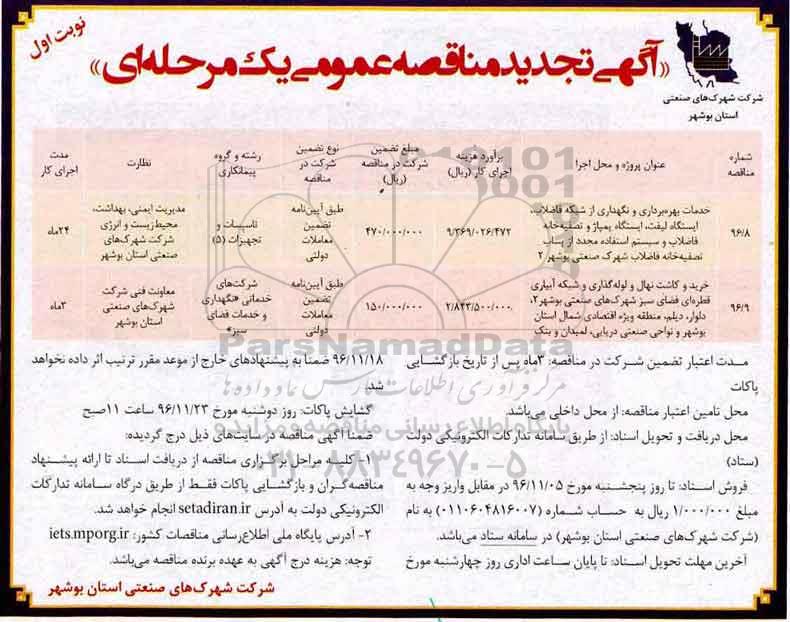 نوبت اول
«آگهی تجدید مناقصه عمومی یک مرحله‌ای»
شرکت شهرک‌های صنعتی
استان بوشهر
شماره مناقصه
عنوان پروژه و محل اجرا
برآورد هزینه اجرای کار (ریال)
مبلغ تضمین شرکت در مناقصه (ریال)
نوع تضمین شرکت در مناقصه
رشته و گروه پیمانکاری
نظارت
مدت اجرای کار
۹۶/۸
خدمات بهره‌برداری و نگهداری از شبکه فاضلاب،
ایستگاه لیفت، ایستگاه پمپاژ و تصفیه‌خانه
فاضلاب و سیستم استفاده مجدد از پساب
تصفیه‌خانه فاضلاب شهرک صنعتی بوشهر ۲
۹/۳۶۹/۰۲۶/۴۷۲
۴۷۰/۰۰۰/۰۰۰
طبق آیین‌نامه
تضمین
معاملات
دولتی
تاسیسات و
تجهیزات (۵)
مدیریت ایمنی، بهداشت،
محیط‌زیست و انرژی
شرکت شهرک‌های
صنعتی استان بوشهر
۲۴ماه
۹۶/۹
خرید و کاشت نهال و لوله‌گذاری و شبکه آبیاری
قطره‌ای فضای سبز شهرک‌های صنعتی بوشهر۲،
دلوار، دیلم، منطقه ویژه اقتصادی شمال استان
بوشهر و نواحی صنعتی دریایی، لمیدان و بنک
۲/۸۴۳/۵۰۰/۰۰۰
۱۵۰/۰۰۰/۰۰۰
طبق آیین‌نامه
تضمین
معاملات
دولتی
شرکت‌های
خدماتی «نگهداری
و خدمات فضای
سبز»
معاونت فنی شرکت
شهرک‌های صنعتی
استان بوشهر
۳ماه
مدت اعتبار تضمین شرکت در مناقصه: ۳ماه پس از تاریخ بازگشایی
پاکات
محل تامین اعتبار مناقصه: از محل داخلی می‌باشد.
محل دریافت و تحویل اسناد: از طریق سامانه تدارکات الکترونیکی دولت
(ستاد)
فروش اسناد: تا روز پنجشنبه مورخ ۹۶/۱۱/۰۵ در مقابل واریز وجه به
مبلغ ۱/۰۰۰/۰۰۰ ریال به حساب شماره (۰۱۱۰۶۰۴۸۱۶۰۰۷) به نام
(شرکت شهرک‌های صنعتی استان بوشهر) در سامانه ستاد می‌باشد.
آخرین مهلت تحویل اسناد: تا پایان ساعت اداری روز چهارشنبه مورخ
۹۶/۱۱/۱۸ ضمنا به پیشنهادهای خارج از موعد مقرر ترتیب اثر داده نخواهد
شد.
گشایش پاکات: روز دوشنبه مورخ ۹۶/۱۱/۲۳ ساعت ۱۱صبح
ضمنا آگهی مناقصه در سایت‌های ذیل درج گردیده:
۱- کلیه مراحل برگزاری مناقصه از دریافت اسناد تا ارائه پیشنهاد
مناقصه‌گران و بازگشایی پاکات فقط از طریق درگاه سامانه تدارکات
الکترونیکی دولت به آدرس setadiran.ir انجام خواهد شد.
۲- آدرس پایگاه ملی اطلاع‌رسانی مناقصات کشور: iets.mporg.ir
توجه: هزینه درج آگهی به عهده برنده مناقصه می‌باشد.
شرکت شهرک‌های صنعتی استان بوشهر
ParsNamadData
مرکز فرآوری اطلاعات پارس نماد داده‌ها
پایگاه اطلاع رسانی مناقصه و مزایده
۰۲۱-۸۸۳۴۹۶۷۰-۵